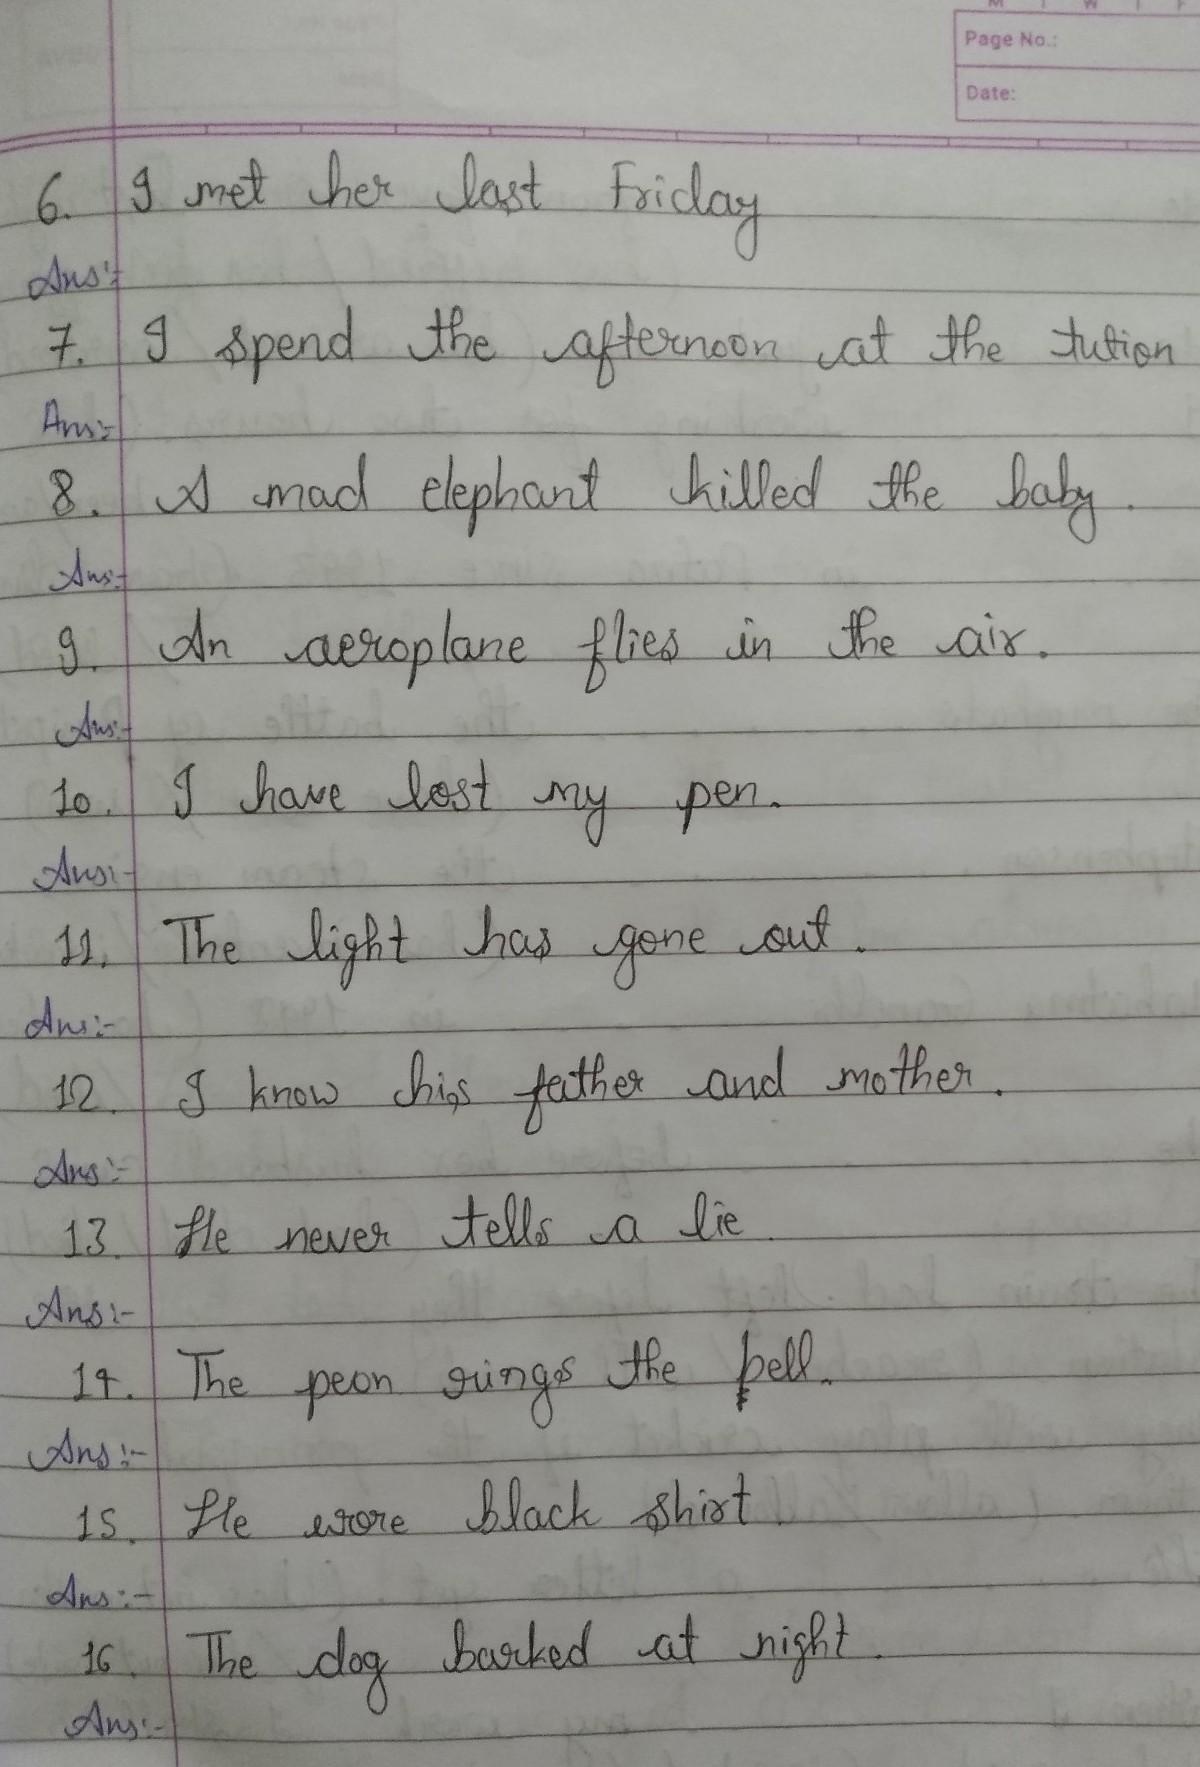 Page No.:
Date:
6. I met her last Friday
Ans:-
7. I spend the afternoon at the tution
Ans:-
8. A mad elephant killed the baby.
Ans:-
9. An aeroplane flies in the air.
Ans:-
10. I have lost my pen.
Ans:-
11. The light has gone out.
Ans:-
12. I know his father and mother.
Ans:-
13. He never tells a lie.
Ans:-
14. The peon rings the bell.
Ans:-
15. He wore black shirt.
Ans:-
16. The dog barked at night.
Ans:-